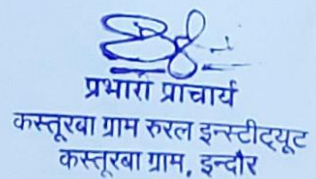 प्रभारी प्राचार्य
कस्तूरबा ग्राम रुरल इन्स्टीट्यूट
कस्तूरबा ग्राम, इन्दौर